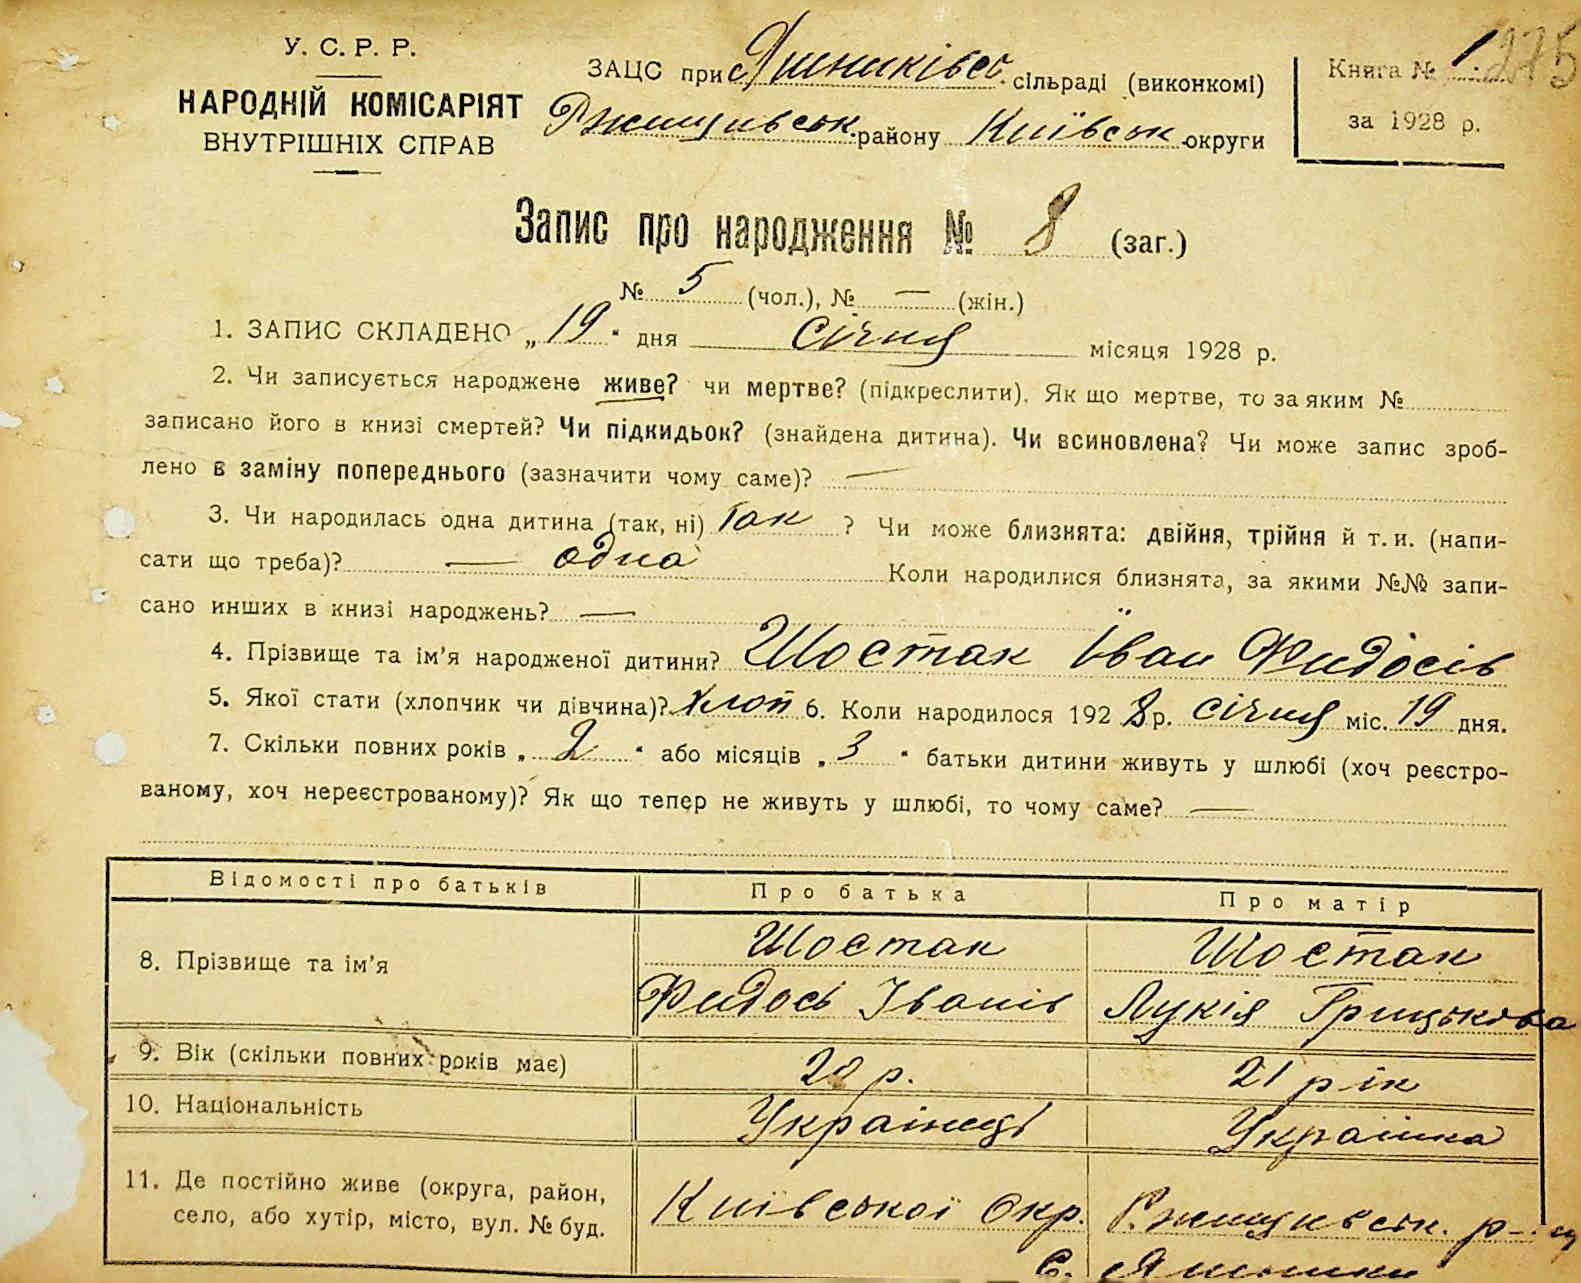 У. С. Р. Р.
НАРОДНІЙ КОМІСАРІЯТ
ВНУТРІШНІХ СПРАВ
ЗАЦС при Яшниківсь. сільраді (виконкомі)
Ржищивськ. району Київськ округи
Книга № 1. 275
за 1928 р.
Запис про народження № 8 (заг.)
№ 5 (чол.), № — (жін.)
1. ЗАПИС СКЛАДЕНО „19" дня січня місяця 1928 р.
2. Чи записується народжене живе? чи мертве? (підкреслити). Як що мертве, то за яким №
записано його в книзі смертей? Чи підкидьок? (знайдена дитина). Чи всиновлена? Чи може запис зроб-
лено в заміну попереднього (зазначити чому саме)? —
3. Чи народилась одна дитина (так, ні) Так ? Чи може близнята: двійня, трійня й т. и. (напи-
сати що треба)? — одна Коли народилися близнята, за якими №№ запи-
сано инших в книзі народжень? —
4. Прізвище та ім'я народженої дитини? Шостак Іван Фидосів
5. Якої стати (хлопчик чи дівчина)? хлоп 6. Коли народилося 1928 р. січня міс. 19 дня.
7. Скільки повних років „ 2 " або місяців „ 3 " батьки дитини живуть у шлюбі (хоч реєстро-
ваному, хоч нереєстрованому)? Як що тепер не живуть у шлюбі, то чому саме? —
Відомості про батьків Про батька Про матір
8. Прізвище та ім'я Шостак Фидось Іванів Шостак Лукія Грицькова
9. Вік (скільки повних років має) 20 р. 21 рік
10. Національність Українці Українка
11. Де постійно живе (округа, район,
село, або хутір, місто, вул. № буд. Київської Окр. Ржищивськ. р-
с. Яшники